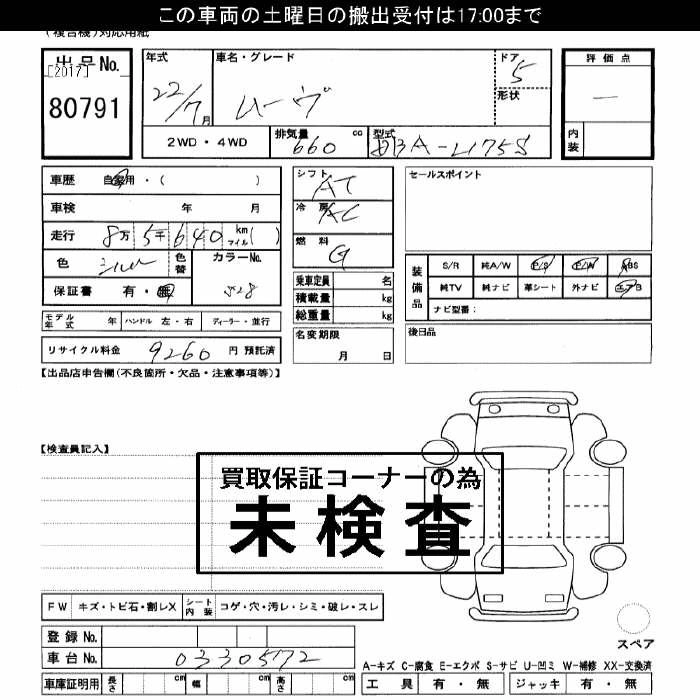 この車両の土曜日の搬出受付は17:00まで
(複合機)対応用紙
出品No.
[2017]
80791
年式 22/7 月
車名・グレード ムーヴ
ドア 5
形状
2WD・4WD
排気量 660 cc
型式 DBA-L175S
評価点
—
内装
車歴 自家用・( )
車検 年 月
走行 8万 5千 640 km マイル( )
色 シルバー 色替
カラーNo. S28
保証書 有・無
モデル年式 年 ハンドル 左・右 ディーラー・並行
リサイクル料金 9260 円 預託済
シフト AT
冷房 AC
燃料 G
乗車定員 名
積載量 kg
総重量 kg
名変期限
月 日
セールスポイント
装備品
S/R 純A/W P/S P/W ABS
純TV 純ナビ 革シート 外ナビ エアB
ナビ型番：
後日品
【出品店申告欄(不良箇所・欠品・注意事項等)】
【検査員記入】
買取保証コーナーの為
未検査
FW キズ・トビ石・割レX シート内装 コゲ・穴・汚レ・シミ・破レ・スレ
登録No.
車台No. 0330572
車庫証明用 長さ cm 幅 cm 高さ cm
スペア
A-キズ C-腐食 E-エクボ S-サビ U-凹ミ W-補修 XX-交換済
工具 有・無 ジャッキ 有・無